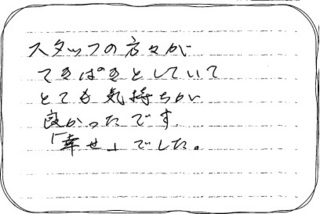 スタッフの方々が
てきぱきとしていて
とても気持ちが
良かったです。
「幸せ」でした。